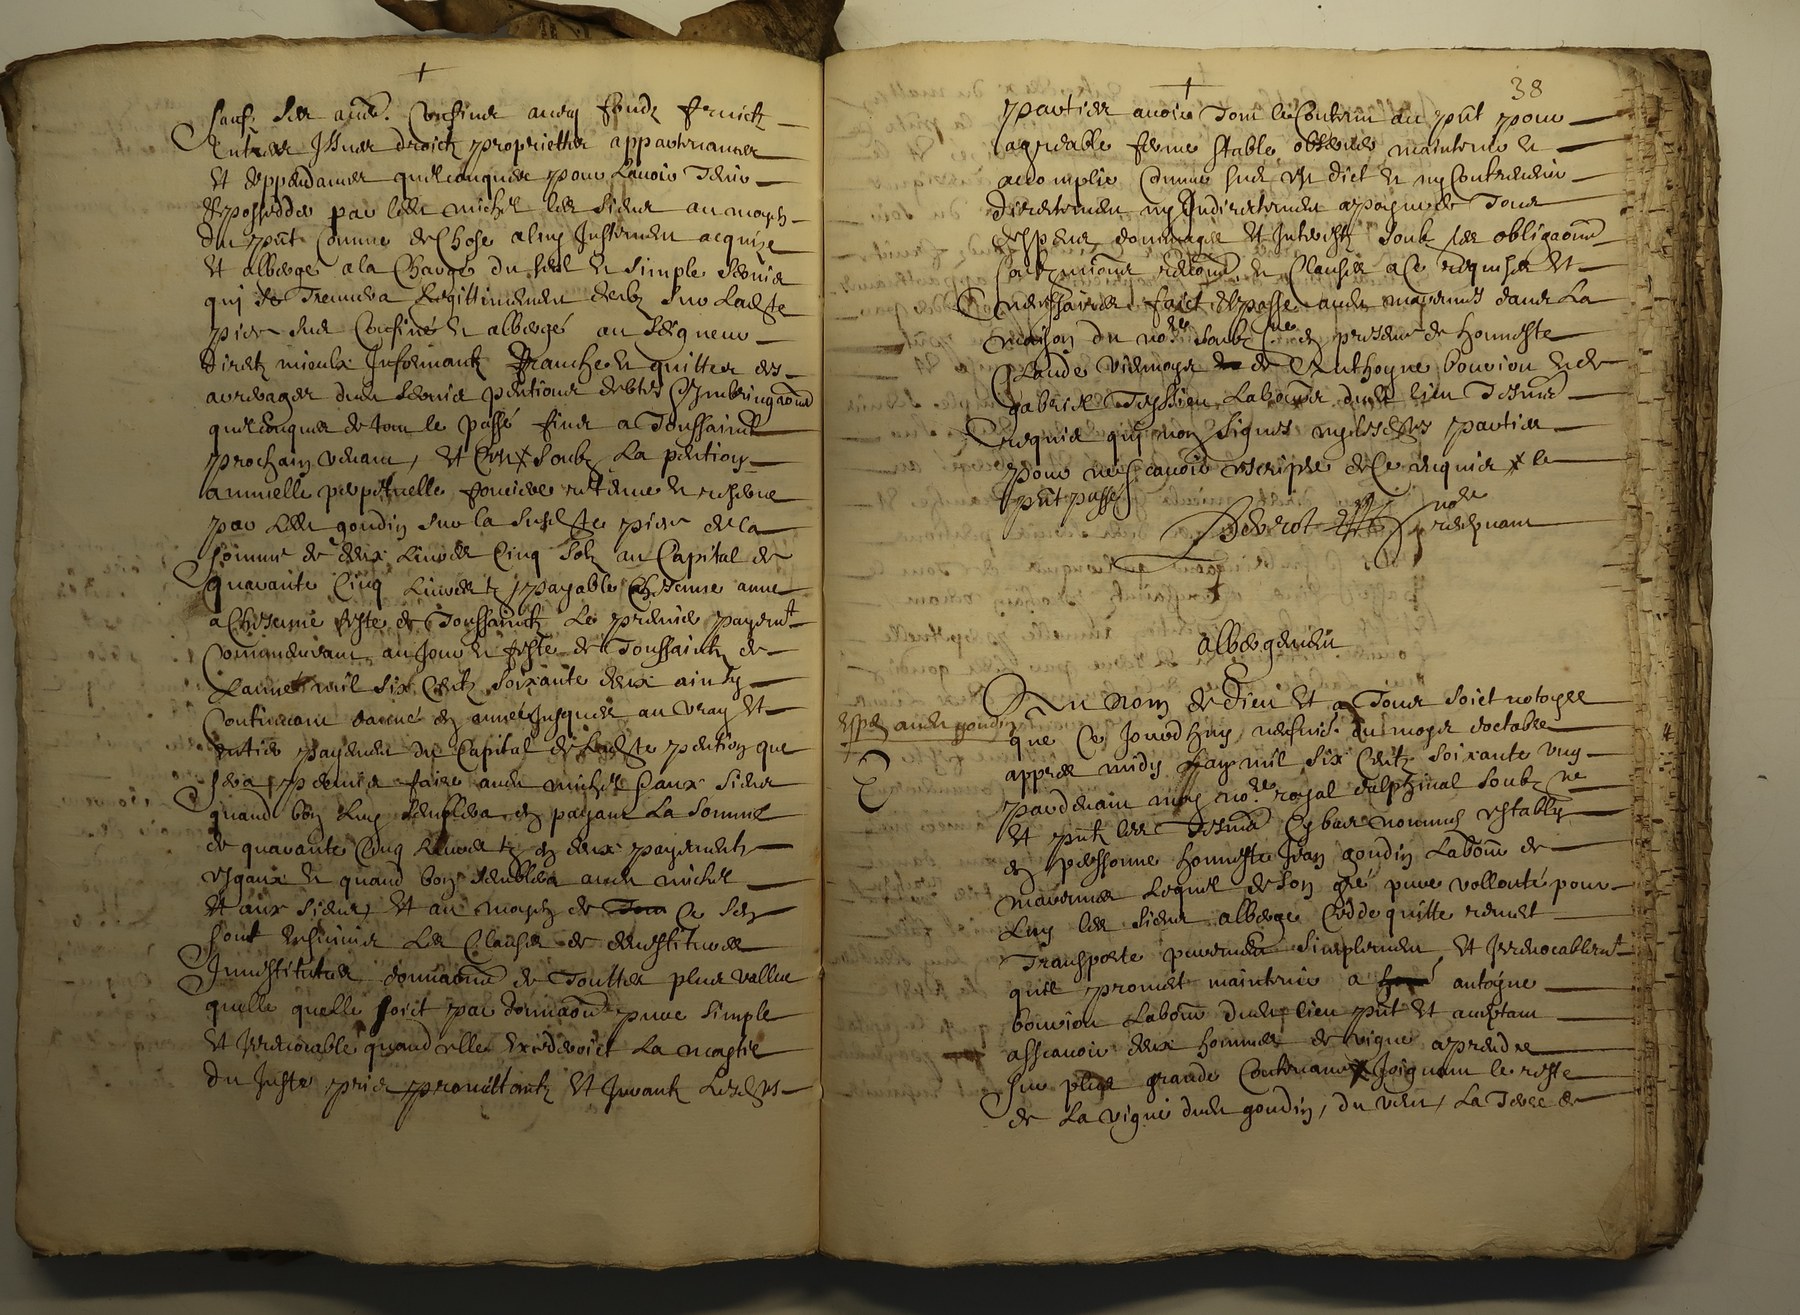 sauf ses autres Confins avecq fondz fruictz
Entrees Issues droictz proprietes appartenances
et deppendances quelconques pour Lavoir Tenir
et posseder par ledit michel les siens au moyen
du pnt Comme de Chose a luy Justement acquise
et alberge a la Charge du seul et simple servis
qui se Treuvera Legittimement deub sur Ladte
piece sus Confiné et albergé au seigneur
direct mieulx Informant franche et quitte des
arreages dudit servis pentions debtes
quelconques de tout le passé fins a Toussaint
prochain venant, et Ce soubz La pention
annuelle perpetuelle fonciere retenue et reservee
par ledit goudin sur la susdte piece de la
somme de deux Livres Cinq solz au Capital de
quarante Cinq Livres tz payable Chescune annee
a Chescune feste de Toussainctz Le premier payemt
Comancant au Jour et feste de Toussaintz de
Lannee mil six Centz soixante deux ainsy
Continuant dannee en annee Jusques au vray et
entier payement du Capital de ladte pention que
sera permis faire audit michel et aux siens
quand bon luy semblera en payant La somme
de quarante Cinq Livres tz en deux payementz
esgaux et quand bon semblera audit michel
et aux siens, et au moyen de Ce
sont Inserees Les Clauses de devestitures
Investitures donnaons de Touttes plus vallue
quelle quelle soict par donnaon pure simple
et Irrevocable quand elle Excederoict La moytie
du Juste prix promettantz et Jurantz Lesdtes
38
parties avoir Tout le Contenu au pnt pour
agreable ferme stable observer maintenir et
accomplir Comme sus est dict et ny Contrevenir
directement ny Indirectement a poyne de Tous
despens dommages et Interestz soubz les obligaons
renons et Clauses a Ce requises et
necessaires faict et passé audit mayernes dans La
maison du nore soubzne en presence de honneste
Claude viemoys de Enthoyne bouvion et de
gabriel Teyssieu Laboureurs dudt lieu Tesmoins
requis qui nont signes ny lesdtes parties
pour ne scavoir escripre de Ce requis le
pnt passé
Beerot nore recepvant
albergement
Au Nom de Dieu et a Tous soict notoyre
que Ce Jourdhuy neufvie du moys doctobre
appres midy Lan mil six Centz soixante ung
pardevant moy nore royal dalphinal soubzne
et pntz les Tesmoins Cy bas nommes estably
en personne honneste Jean goudin Laboureur de
mayernes Lequel de son gré pure vollonté pour
Luy les siens alberge Cedde quitte remet
Transporte purement simplement et Irrevocablemt
quil promet maintenir a antoyne
bouvion Laboureur dudit lieu pnt et aceptant
asscavoir deux hommees de vigne a prendre
sur plus grande Contenance Joignant le reste
de La vigne dudit goudin, du vent, La Terre de
expé audit goudin